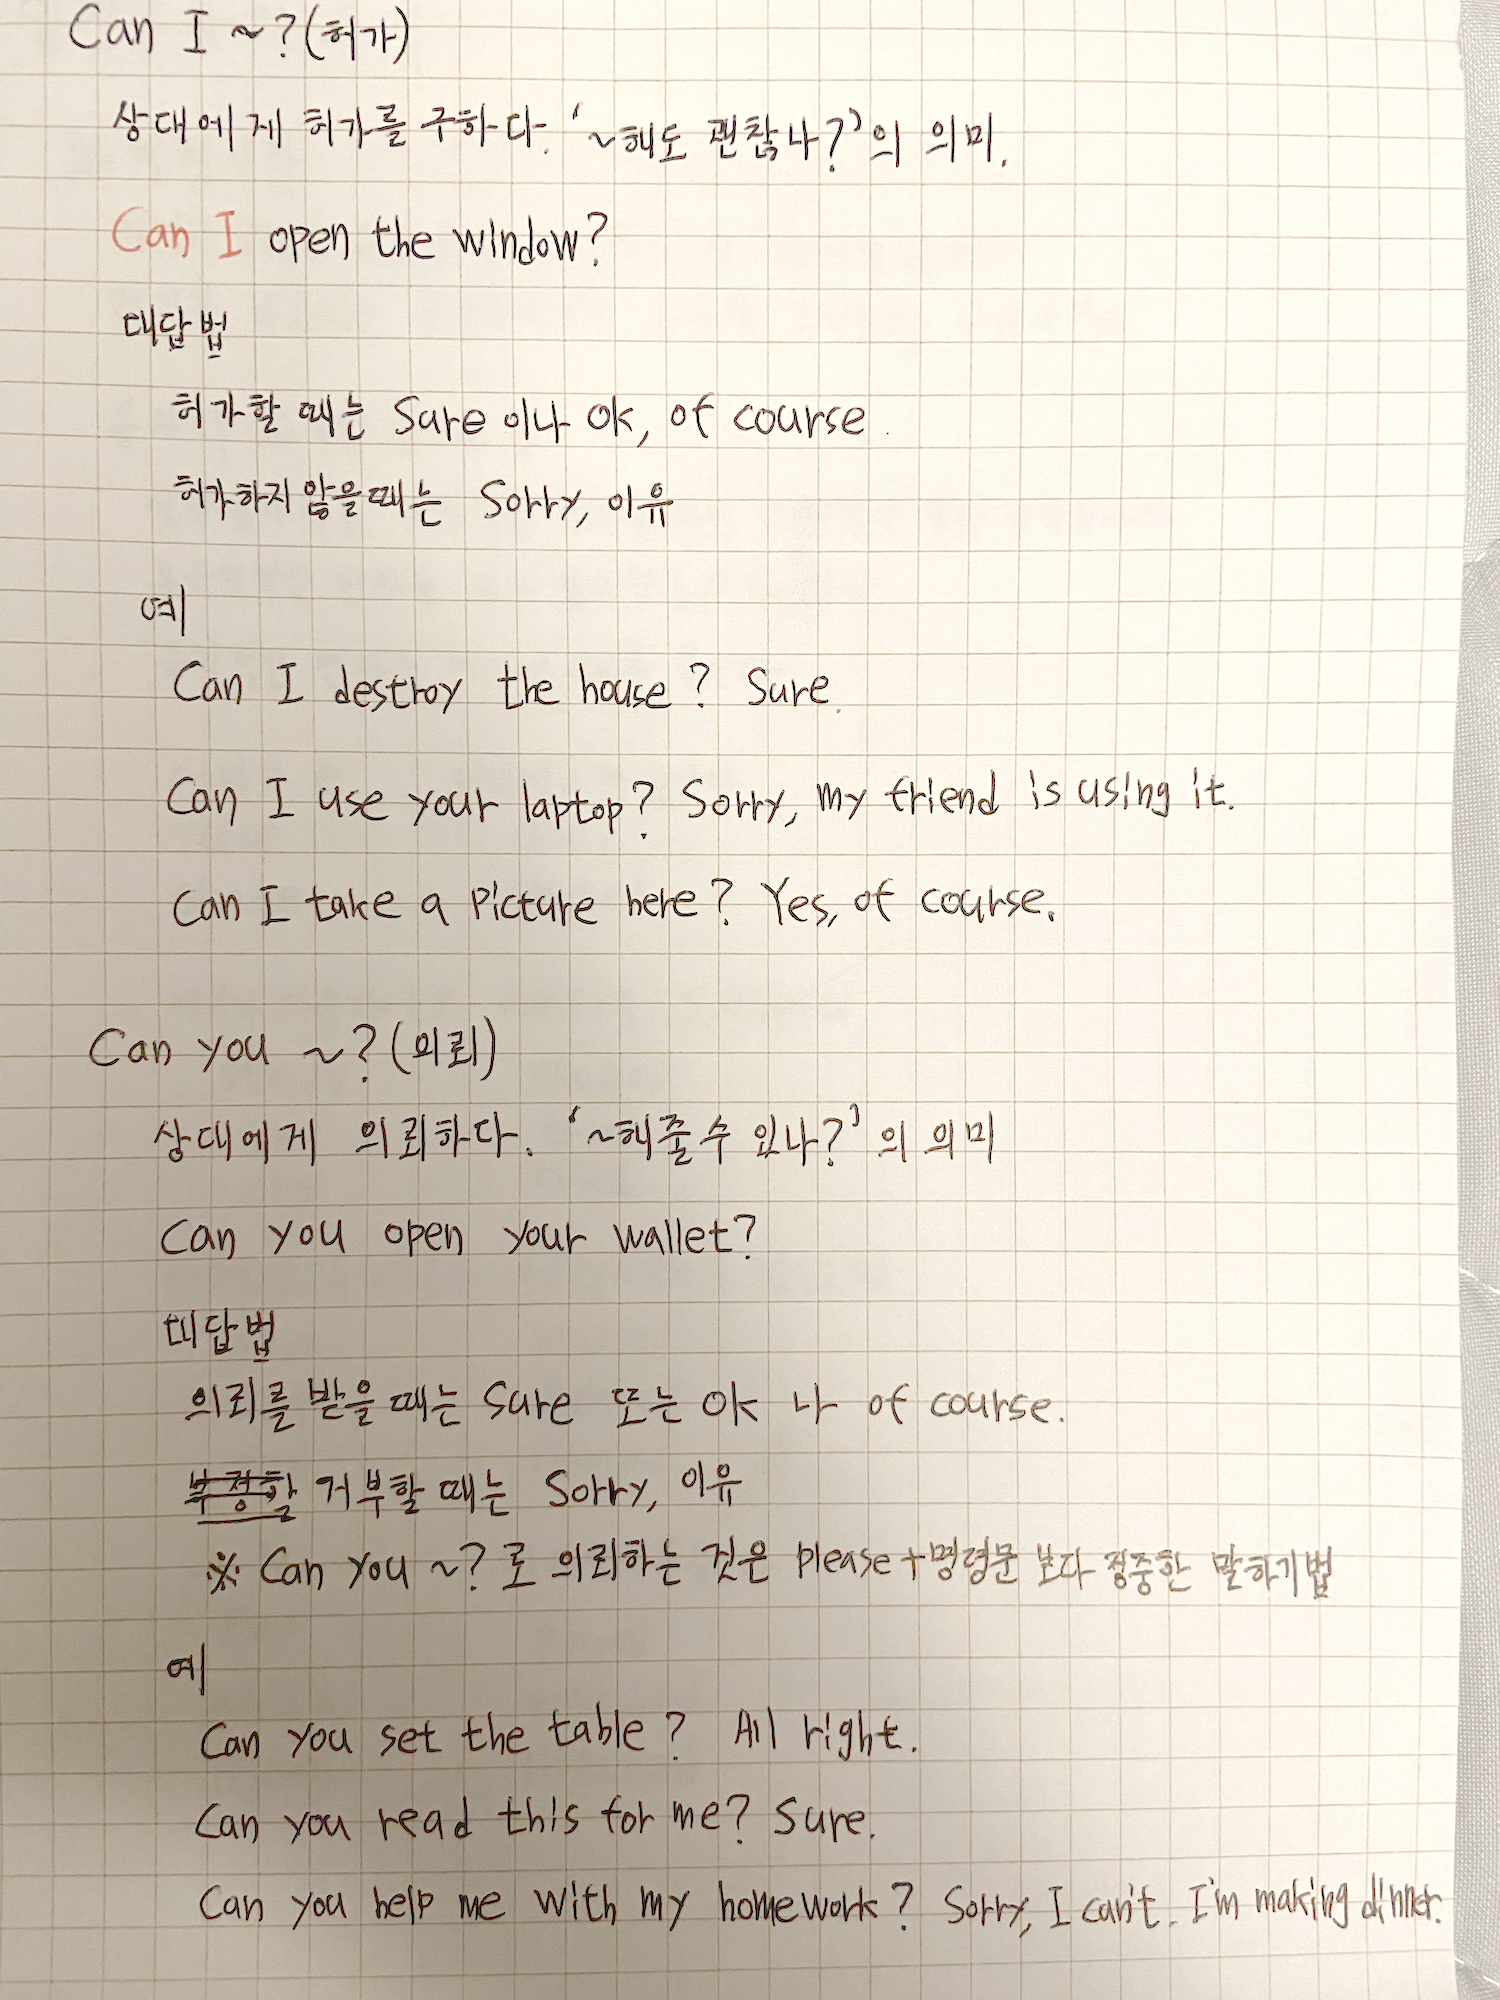 Can I ~?(허가)
상대에게 허가를 구하다. '~해도 괜찮나?'의 의미.
Can I open the window?
대답법
허가할 때는 Sure 이나 OK, of course.
허가하지 않을때는 Sorry, 이유
예
Can I destroy the house? Sure.
Can I use your laptop? Sorry, my friend is using it.
Can I take a picture here? Yes, of course.
Can you ~?(의뢰)
상대에게 의뢰하다. '~해줄수 있나?'의 의미
Can you open your wallet?
대답법
의뢰를 받을 때는 Sure 또는 OK 나 of course.
부정할 거부할 때는 Sorry, 이유
※ Can you ~?로 의뢰하는 것은 please+명령문 보다 정중한 말하기법
예
Can you set the table? All right.
Can you read this for me? Sure.
Can you help me with my homework? Sorry, I can't. I'm making dinner.